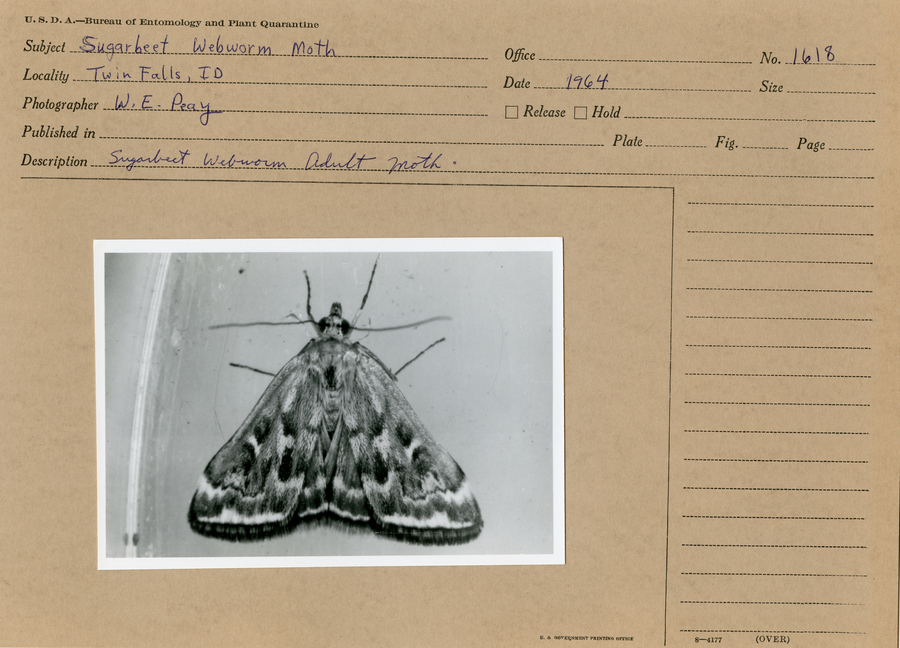 U. S. D. A.—Bureau of Entomology and Plant Quarantine
Subject Sugarbeet Webworm Moth Office No. 1618
Locality Twin Falls, ID Date 1964 Size
Photographer W. E. Peay Release Hold
Published in Plate Fig. Page
Description Sugarbeet Webworm Adult moth.
U. S. GOVERNMENT PRINTING OFFICE 8—4177 (OVER)